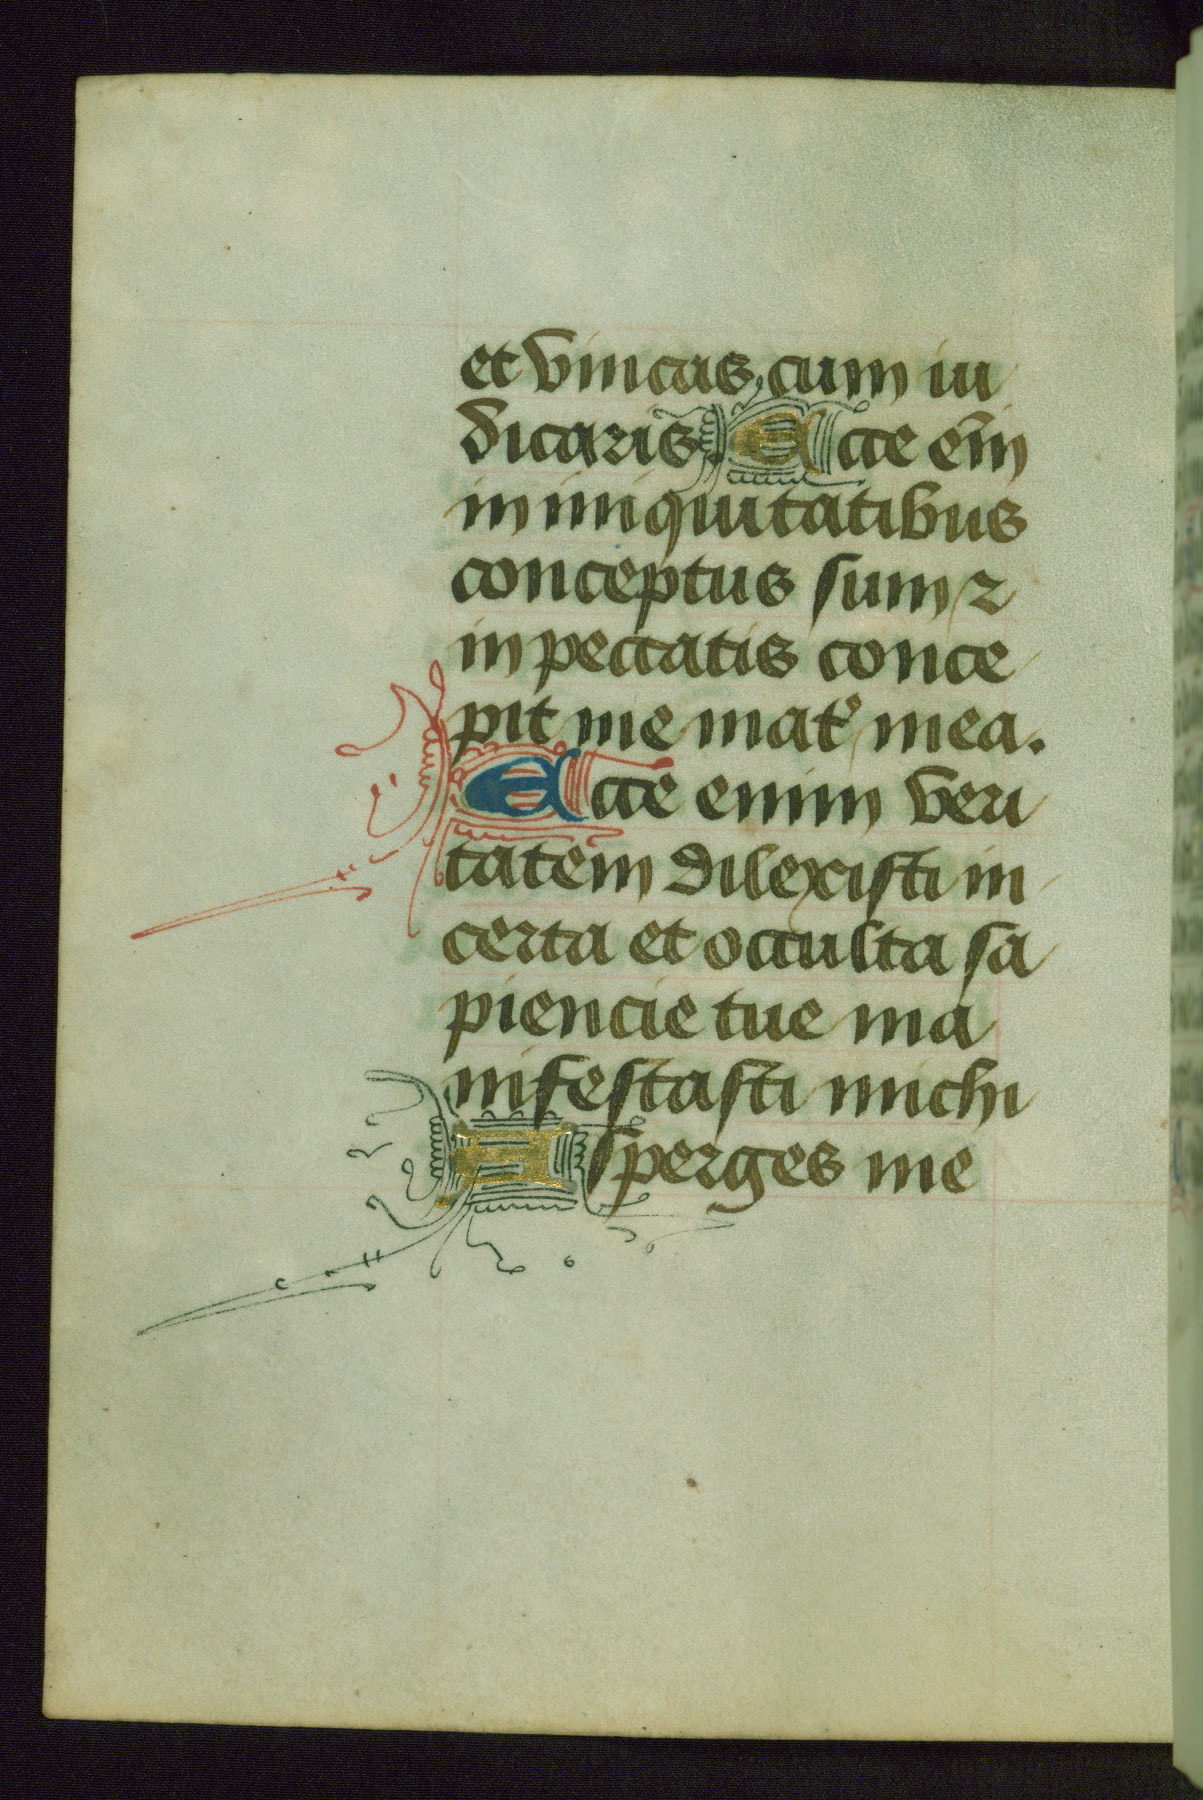 et vincas cum iu
dicaris. Ecce em̄
in iniquitatibus
conceptus sum ⁊
in peccatis conce
pit me mat͛ mea.
Ecce enim veri
tatem dilexisti in
certa et occulta sa
piencie tue ma
nifestasti michi
Asperges me